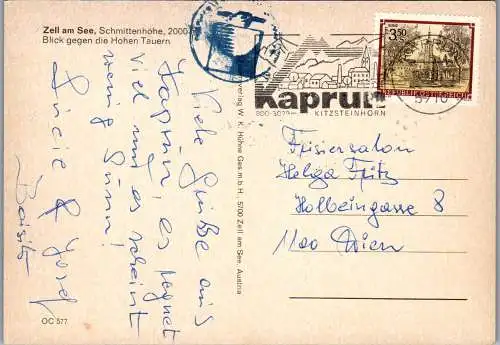 Zell am See, Schmittenhöhe, 2000
Blick gegen die Hohen Tauern
Viele Grüße aus
Kaprun, es regnet
viel und es scheint
wenig Sonne!
Lucie & Josef
OC 577
verlag W. K. Hühne Ges.m.b.H., 5700 Zell am See, Austria
Kaprun
KITZSTEINHORN
3.50
REPUBLIK ÖSTERREICH
5710
Frisiersalon
Helga Fritz
Holbeingasse 8
1100 Wien